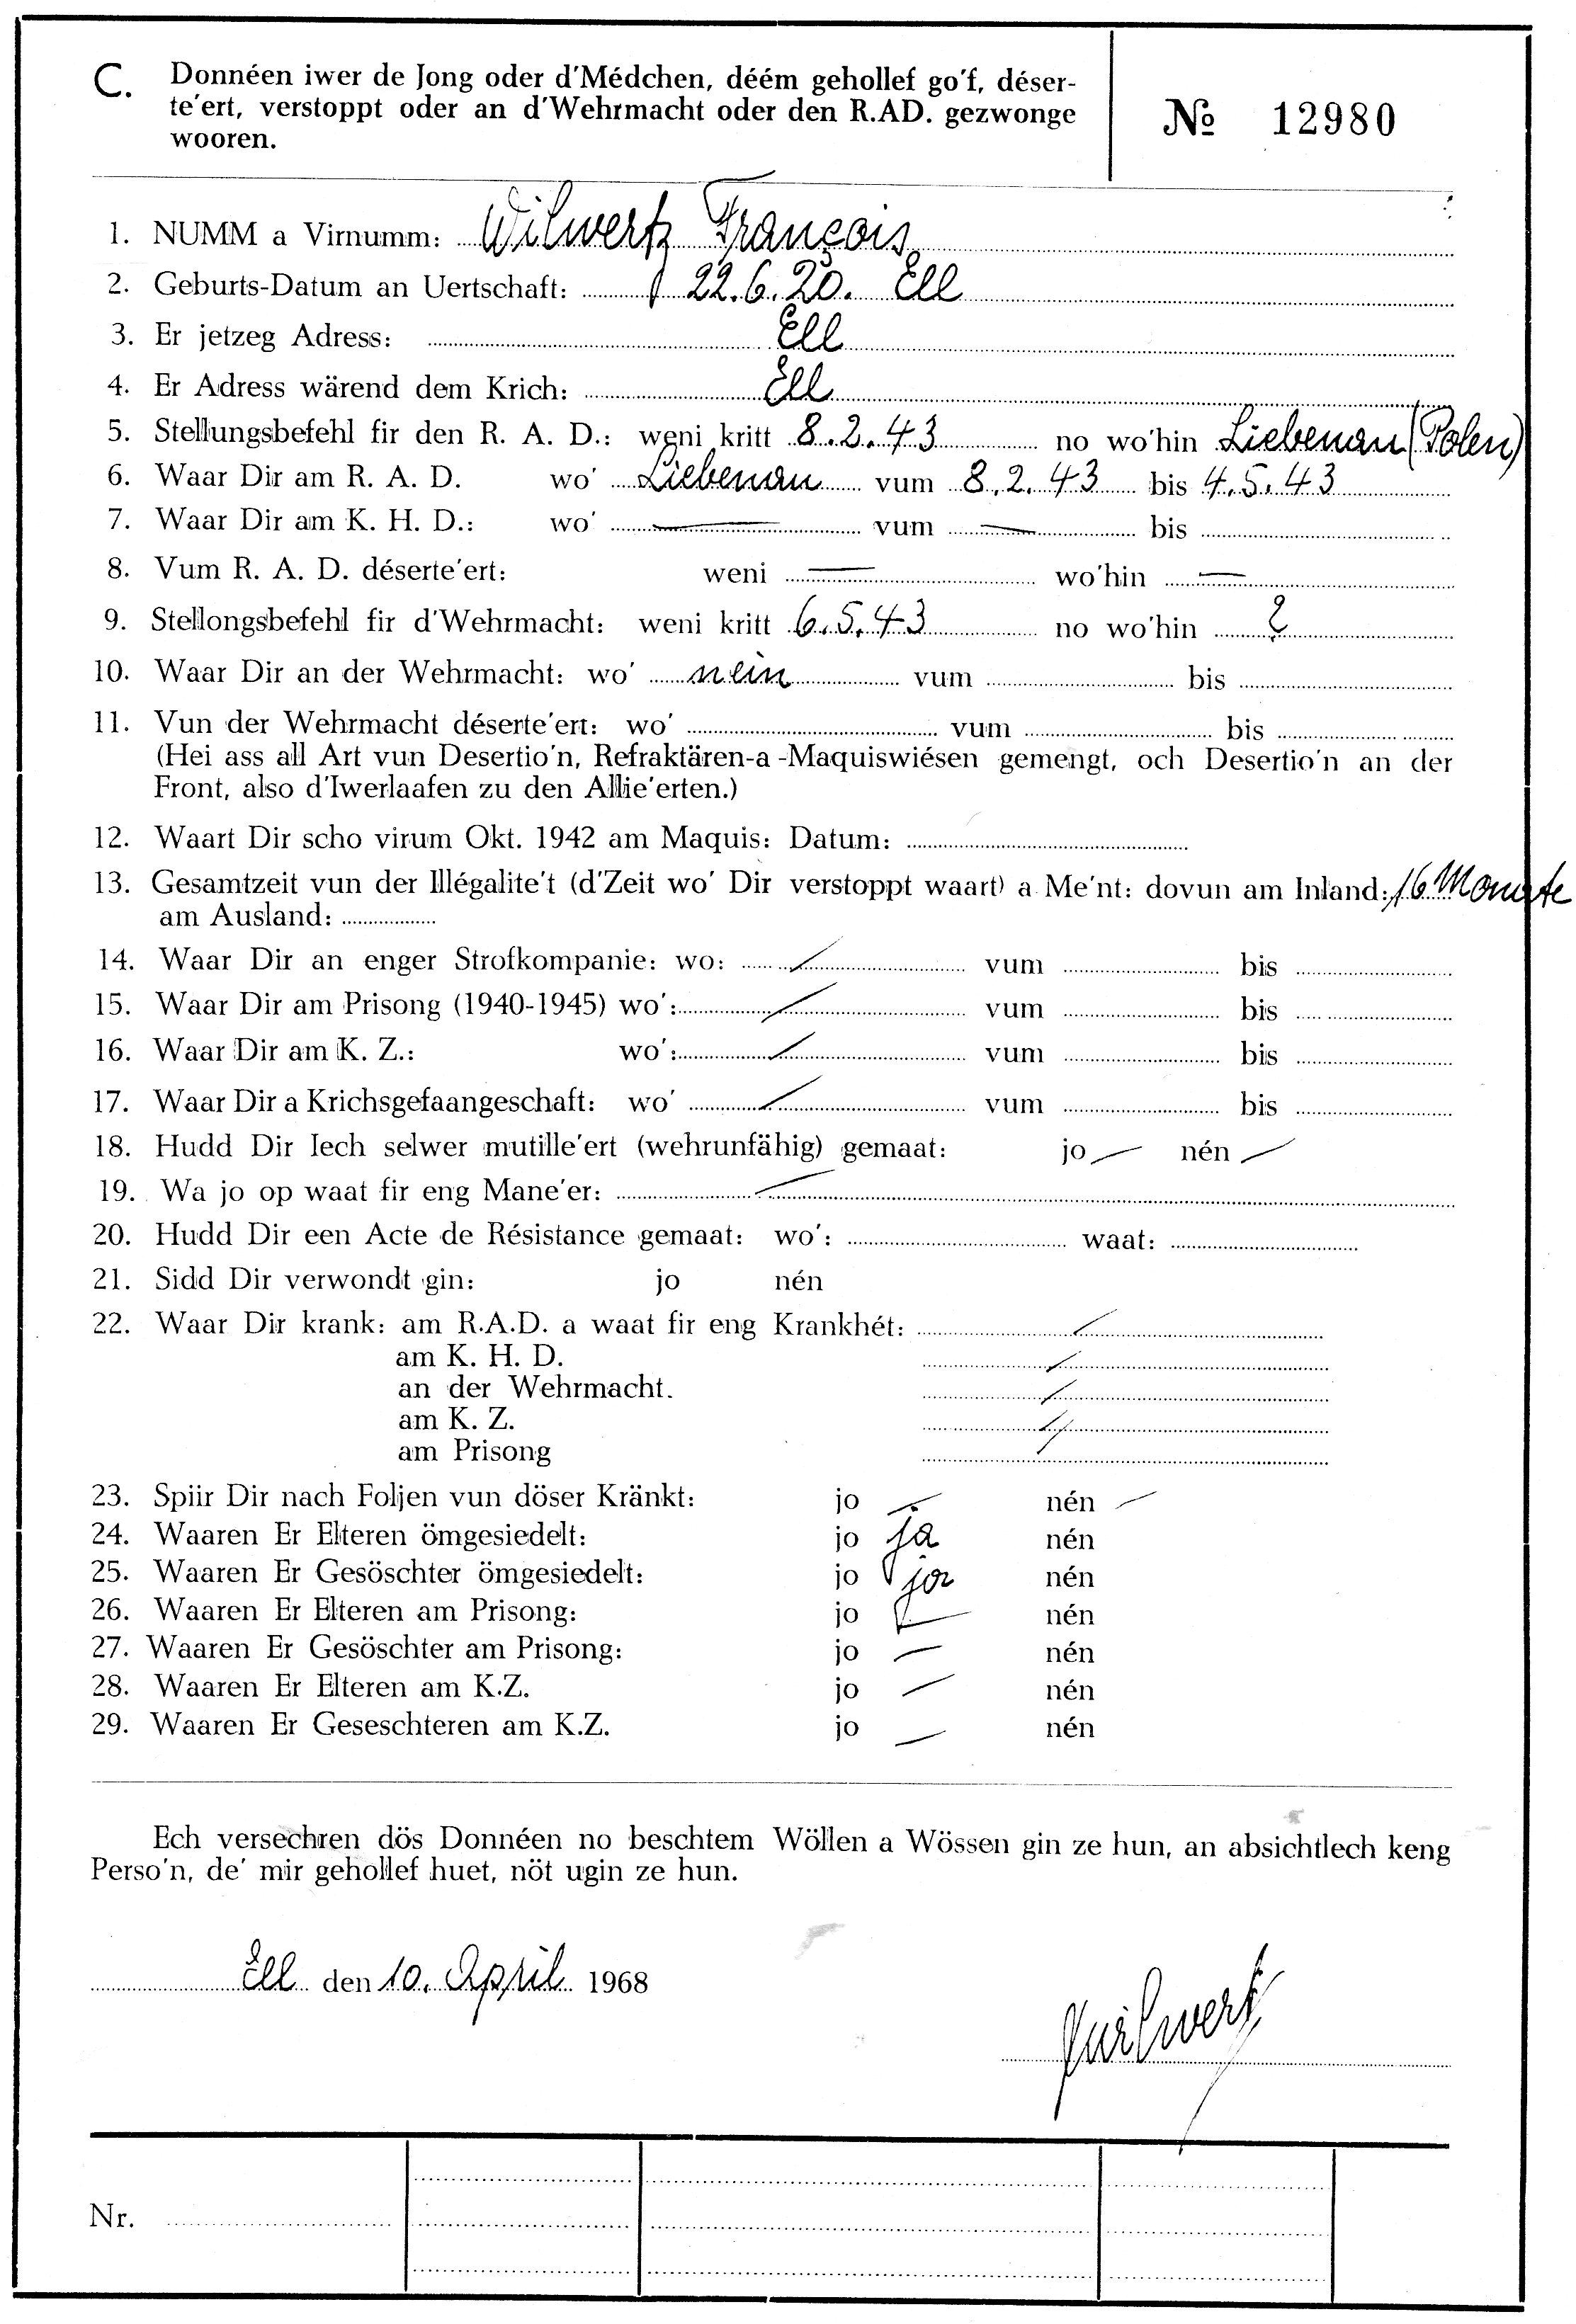 C. Donnéen iwer de Jong oder d'Médchen, déém gehollef go'f, déser-
te'ert, verstoppt oder an d'Wehrmacht oder den R.AD. gezwonge
wooren.
№ 12980
1. NUMM a Virnumm: Wilwertz François
2. Geburts-Datum an Uertschaft: 22.6.20. Ell
3. Er jetzeg Adress: Ell
4. Er Adress wärend dem Krich: Ell
5. Stellungsbefehl fir den R. A. D.: weni kritt 8.2.43 no wo'hin Liebenau (Polen)
6. Waar Dir am R. A. D. wo' Liebenau vum 8.2.43 bis 4.5.43
7. Waar Dir am K. H. D.: wo' — vum — bis
8. Vum R. A. D. déserte'ert: weni — wo'hin —
9. Stellongsbefehl fir d'Wehrmacht: weni kritt 6.5.43 no wo'hin ?
10. Waar Dir an der Wehrmacht: wo' nein vum bis
11. Vun der Wehrmacht déserte'ert: wo' vum bis
(Hei ass all Art vun Desertio'n, Refraktären-a -Maquiswiésen gemengt, och Desertio'n an der
Front, also d'Iwerlaafen zu den Allie'erten.)
12. Waart Dir scho virum Okt. 1942 am Maquis: Datum:
13. Gesamtzeit vun der Illégalite't (d'Zeit wo' Dir verstoppt waart) a Me'nt: dovun am Inland: 16 Monate
am Ausland:
14. Waar Dir an enger Strofkompanie: wo: / vum bis
15. Waar Dir am Prisong (1940-1945) wo': / vum bis
16. Waar Dir am K. Z.: wo': / vum bis
17. Waar Dir a Krichsgefaangeschaft: wo' / vum bis
18. Hudd Dir Iech selwer mutille'ert (wehrunfähig) gemaat: jo — nén —
19. Wa jo op waat fir eng Mane'er: /
20. Hudd Dir een Acte de Résistance gemaat: wo': waat:
21. Sidd Dir verwondt gin: jo nén
22. Waar Dir krank: am R.A.D. a waat fir eng Krankhét: /
am K. H. D. /
an der Wehrmacht. /
am K. Z. /
am Prisong /
23. Spiir Dir nach Foljen vun döser Kränkt: jo — nén —
24. Waaren Er Elteren ömgesiedelt: jo ja nén
25. Waaren Er Gesöschter ömgesiedelt: jo ja nén
26. Waaren Er Elteren am Prisong: jo — nén
27. Waaren Er Gesöschter am Prisong: jo — nén
28. Waaren Er Elteren am K.Z. jo — nén
29. Waaren Er Geseschteren am K.Z. jo — nén
Ech versechren dös Donnéen no beschtem Wöllen a Wössen gin ze hun, an absichtlech keng
Perso'n, de' mir gehollef huet, nöt ugin ze hun.
Ell den 10. April 1968
Wilwertz
Nr.